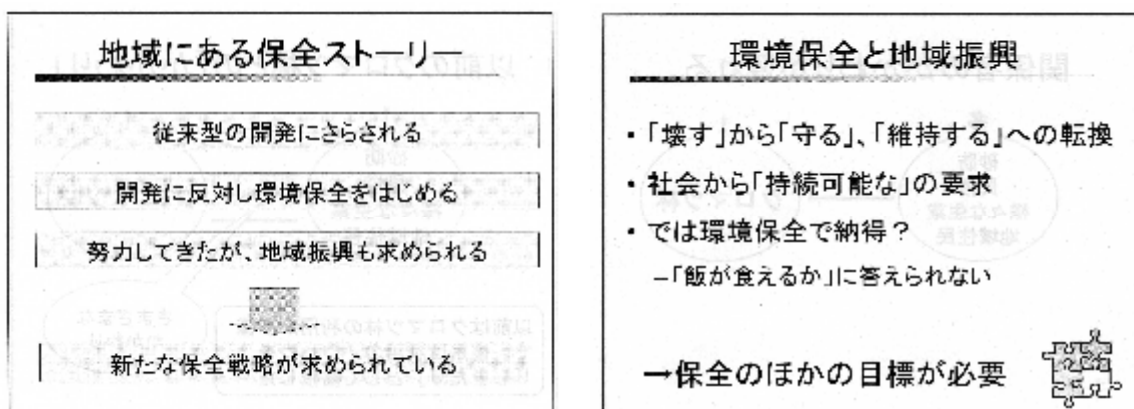 地域にある保全ストーリー
従来型の開発にさらされる
開発に反対し環境保全をはじめる
努力してきたが、地域振興も求められる
新たな保全戦略が求められている
環境保全と地域振興
・「壊す」から「守る」、「維持する」への転換
・社会から「持続可能な」の要求
・では環境保全で納得？
－「飯が食えるか」に答えられない
→保全のほかの目標が必要